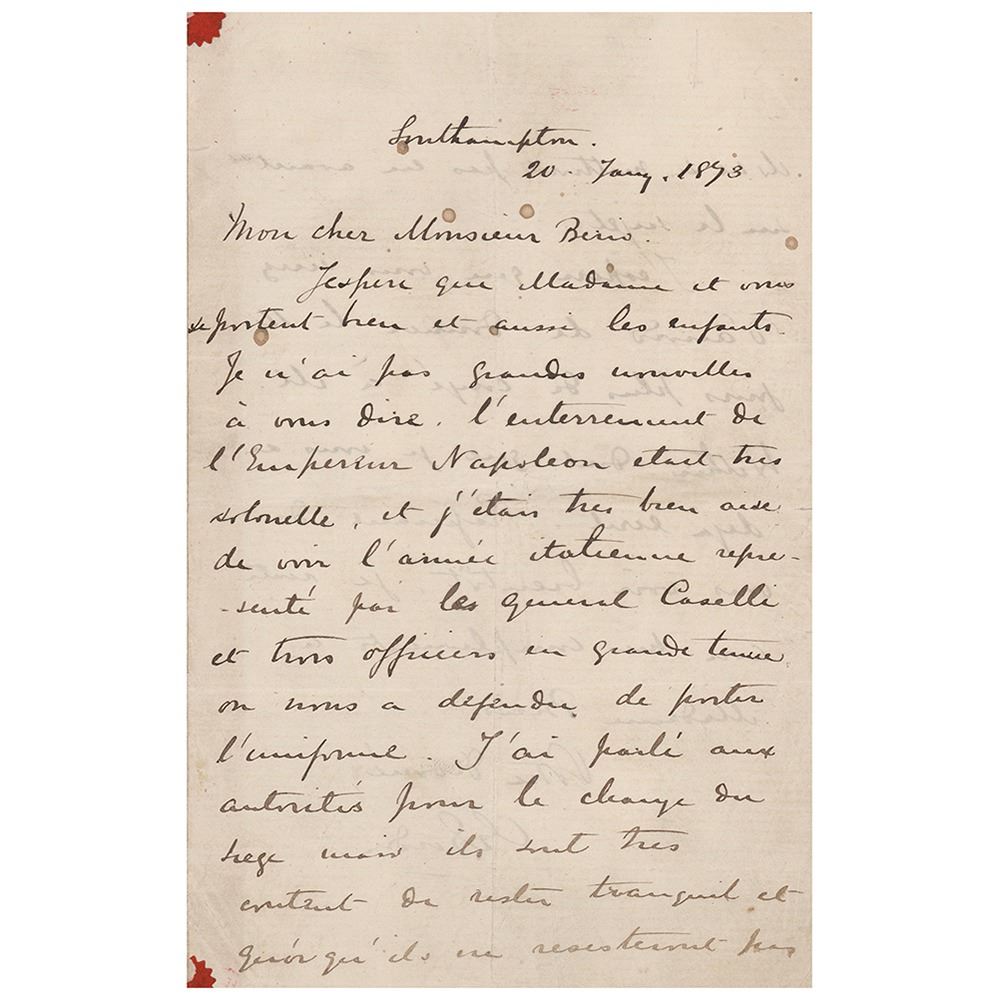 Southampton.
20. Jany. 1873
Mon cher Monsieur Berio.
J'espere que Madame et vous
se portent bien et aussi les enfants.
Je n'ai pas grandes nouvelles
à vous dire. l'enterrement de
l'Empereur Napoleon etait tres
solonelle, et j'étais tres bien aise
de voir l'armée italienne repre-
-senté par les general Caselli
et trois officiers en grande tenue.
on nous a defendu de porter
l'uniforme. J'ai parlé aux
autorités pour le change du
siege mais ils sont tres
content de rester tranquil et
quoiqu'ils ne resisteront pas